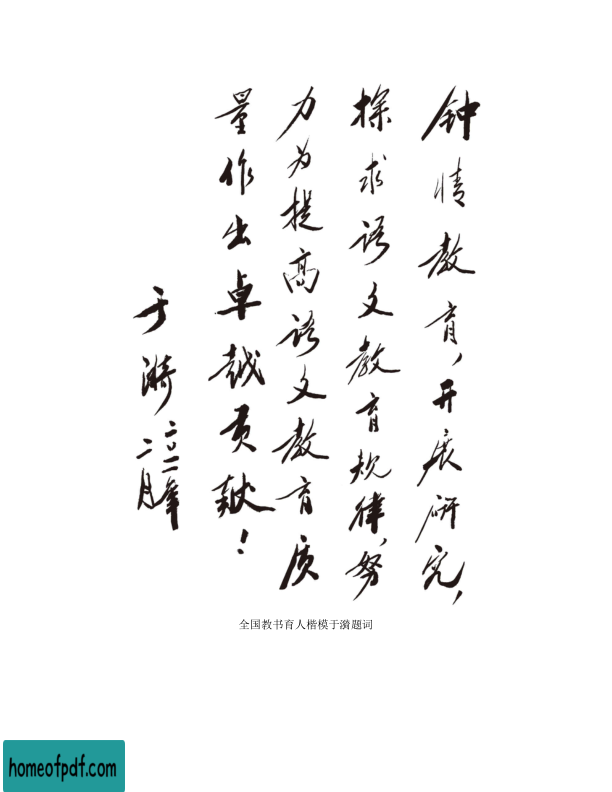 钟情教育，开展研究，
探求语文教育规律，努
力为提高语文教育质
量作出卓越贡献！
于漪
二〇一一年
二月
全国教书育人楷模于漪题词
homeofpdf.com